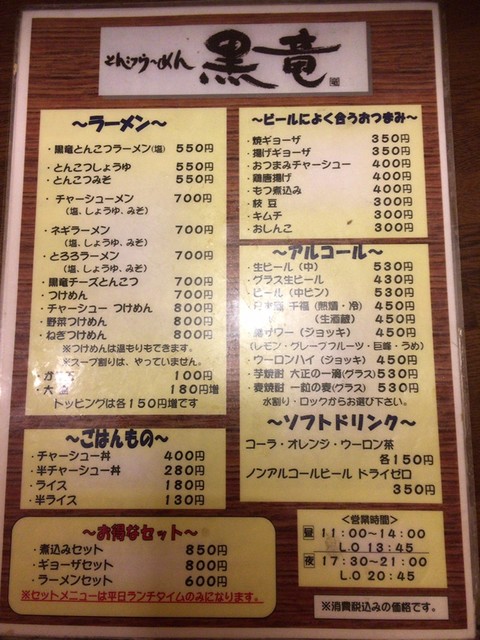 とんこつらーめん 黒竜
～ラーメン～
・黒竜とんこつラーメン(塩) 550円
・とんこつしょうゆ 550円
・とんこつみそ 550円
・チャーシューメン 700円
(塩、しょうゆ、みそ)
・ネギラーメン 700円
(塩、しょうゆ、みそ)
・とろろラーメン 700円
(塩、しょうゆ、みそ)
・黒竜チーズとんこつ 700円
・つけめん 700円
・チャーシュー つけめん 800円
・野菜つけめん 800円
・ねぎつけめん 800円
※つけめんは温もりもできます。
※スープ割りは、やっていません。
100円
・大 180円増
トッピングは各150円増です
～ごはんもの～
・チャーシュー丼 400円
・半チャーシュー丼 280円
・ライス 180円
・半ライス 130円
～お得なセット～
・煮込みセット 850円
・ギョーザセット 800円
・ラーメンセット 600円
※セットメニューは平日ランチタイムのみになります。
～ビールによく合うおつまみ～
・焼ギョーザ 350円
・揚げギョーザ 350円
・おつまみチャーシュー 400円
・鶏唐揚げ 400円
・もつ煮込み 400円
・枝豆 300円
・キムチ 300円
・おしんこ 300円
～アルコール～
・生ビール(中) 530円
・グラス生ビール 430円
・ビール(中ビン) 530円
千福(熱燗・冷) 450円
(生酒蔵) 450円
サワー(ジョッキ) 450円
(レモン・グレープフルーツ・巨峰・うめ)
・ウーロンハイ(ジョッキ) 450円
・芋焼酎 大正の一滴(グラス) 530円
・麦焼酎 一粒の麦(グラス) 530円
水割り・ロックからお選び下さい。
～ソフトドリンク～
コーラ・オレンジ・ウーロン茶
各150円
ノンアルコールビール ドライゼロ
350円
＜営業時間＞
昼 11:00～14:00
L.O 13:45
夜 17:30～21:00
L.O 20:45
※消費税込みの価格です。